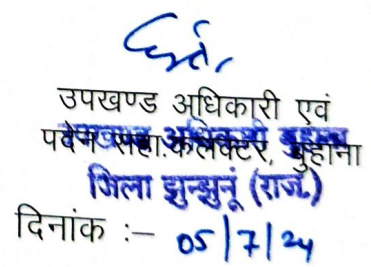 उपखण्ड अधिकारी एवं
पदेन सहा.कलेक्टर, बुहाना
उपखण्ड अधिकारी बुहाना
जिला झुन्झुनूं (राज.)
दिनांक :– 05/7/24